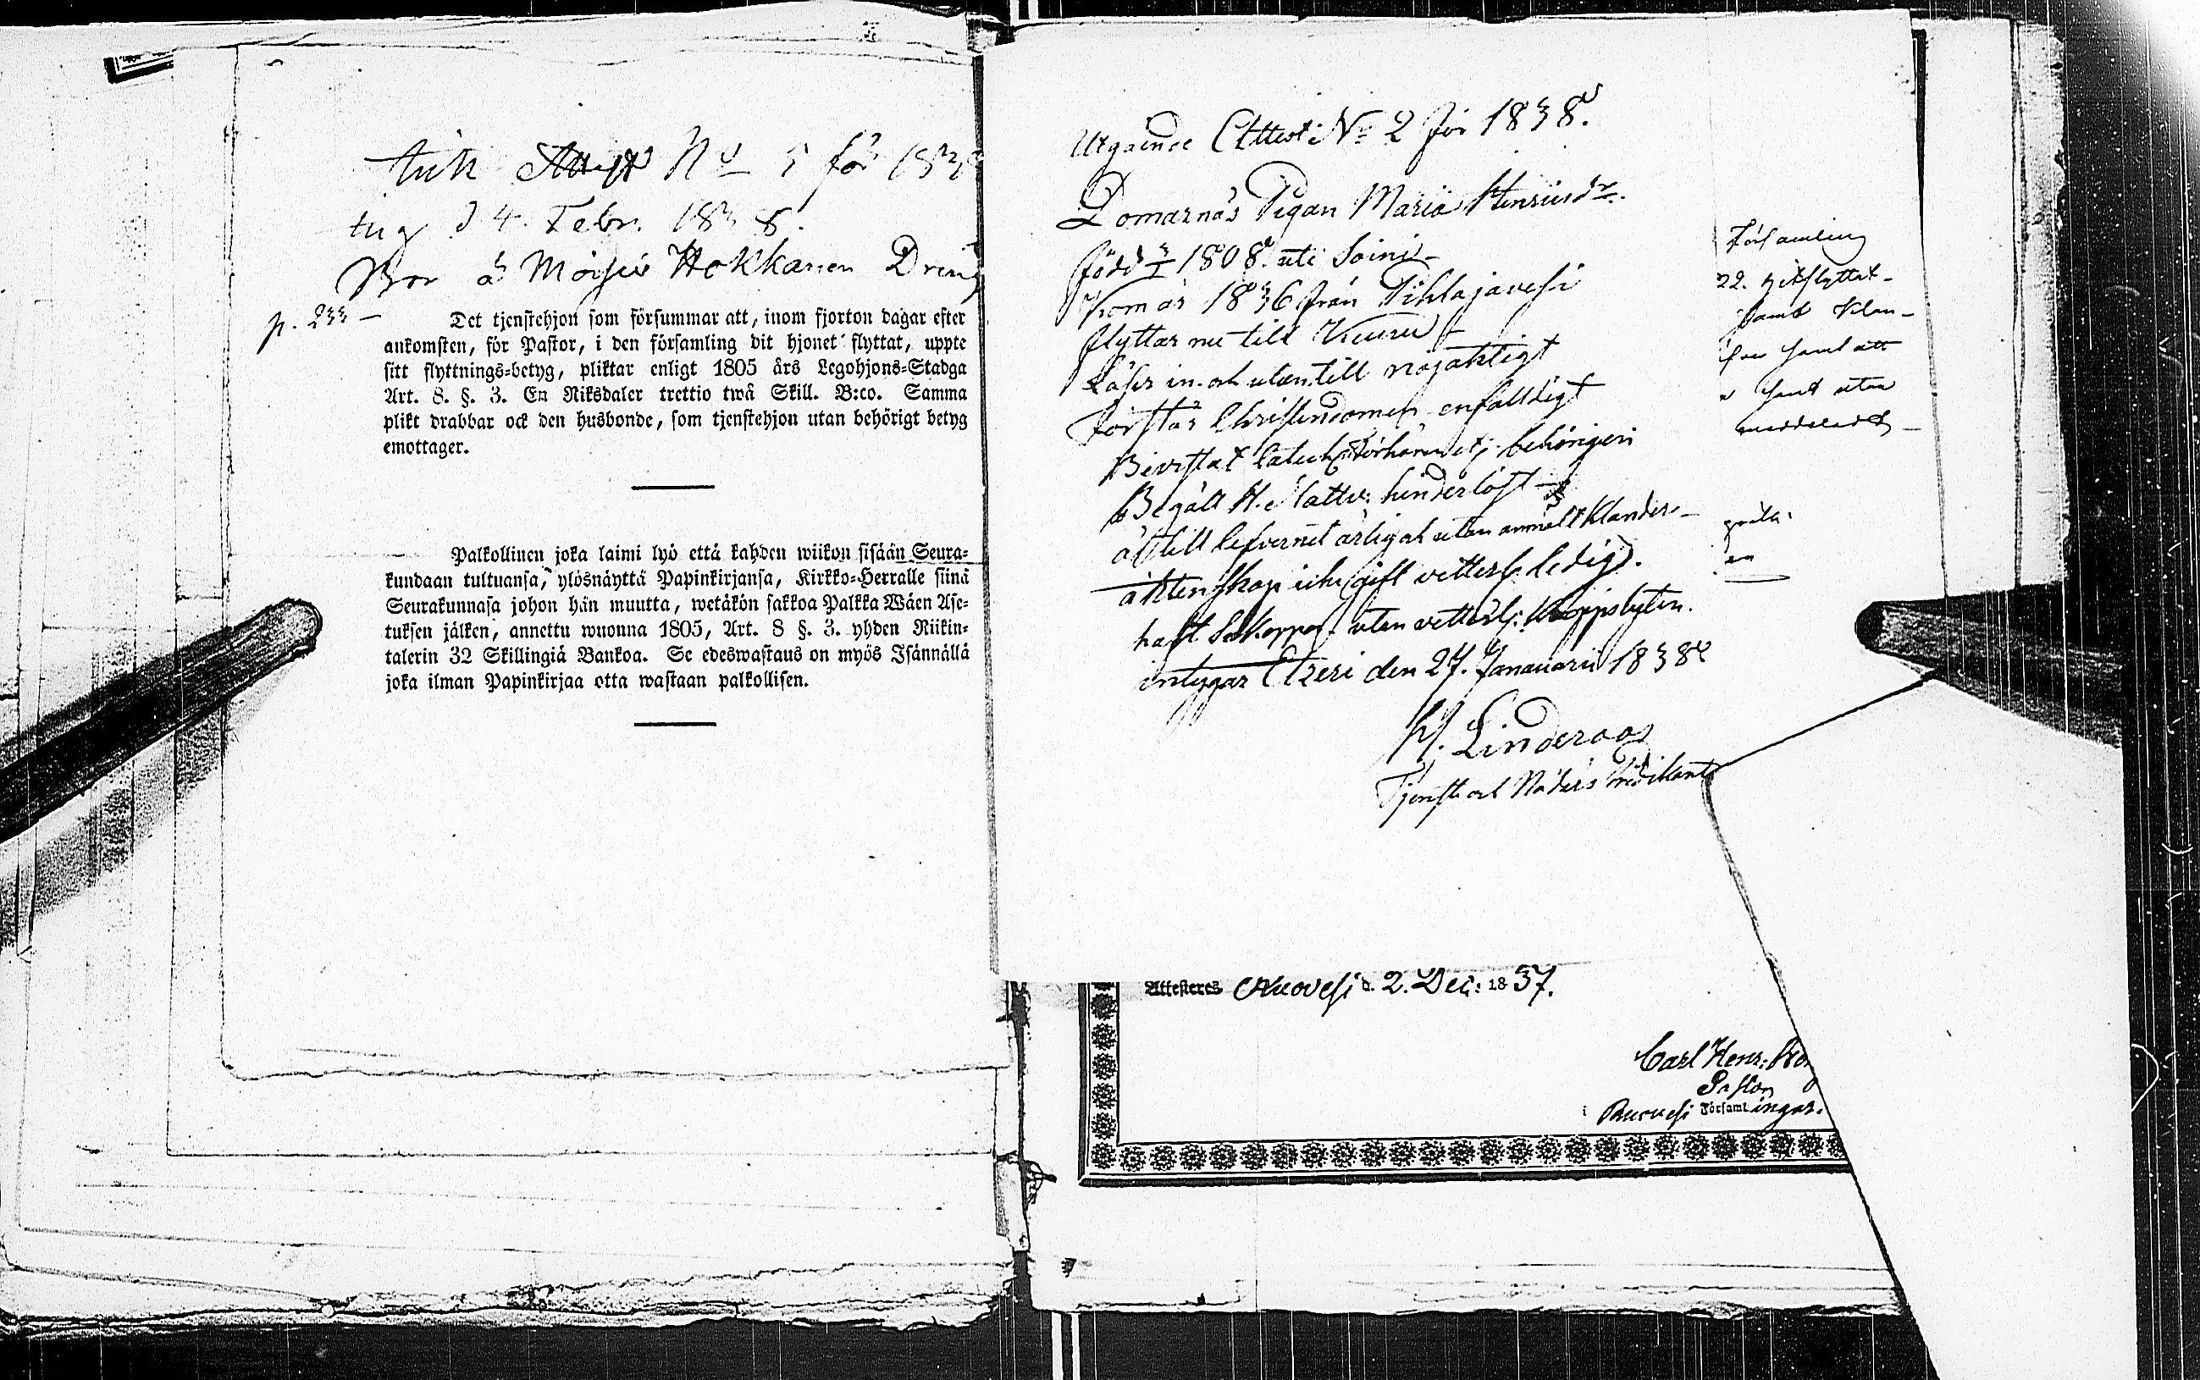 Attest No 5 för
d 4. Febr. 1838.
Bor å Hokkanen Dreng
p. 233 —
Det tjenstehjon som försummar att, inom fjorton dagar efter
ankomsten, för Pastor, i den församling dit hjonet flyttat, uppte
sitt flyttnings-betyg, pliktar enligt 1805 års Legohjons-Stadga
Art. 8. §. 3. En Riksdaler trettio twå Skill. B:co. Samma
plikt drabbar ock den husbonde, som tjenstehjon utan behörigt betyg
emottager.
Palkollinen joka laimi lyö että kahden wiikon sisään Seura-
kundaan tultuansa, ylösnäyttä Papinkirjansa, Kirkko-Herralle siinä
Seurakunnasa johon hän muutta, wetäkön sakkoa Palkka Wäen Ase-
tuksen jälken, annettu wuonna 1805, Art. 8 §. 3. yhden Riikin-
talerin 32 Skillingiä Bankoa. Se edeswastaus on myös Isännällä
joka ilman Papinkirjaa otta wastaan palkollisen.
Utgående Attest No 2 för 1838.
Domarnäs Pigan Maria Henricsdr.
född 1808. uti Soini
kom år 1836 från Pihlajavesi
flyttar nu till Kuru
Läser in och utantill nöjaktigt
förstår Christendomen enfalldigt
Bevistat behörigen
Begått H. Nattv: hinderlöst
till lefvernet ärlig och utan anmält klander
äktenskap icke gift vetterl. ledig.
haft Skoppor utan vetterl:
intygar Etzeri den 27. Januarii 1838
H. Linderoos
Tjenste och Nådårs Predikant
Församling
22. utflyttat
samt
samt att
samt utan
meddeladt
Attesteres Ruovesi d. 2. Dec: 1837.
Carl Henr:
Pastor
i Ruovesi Församlingar.